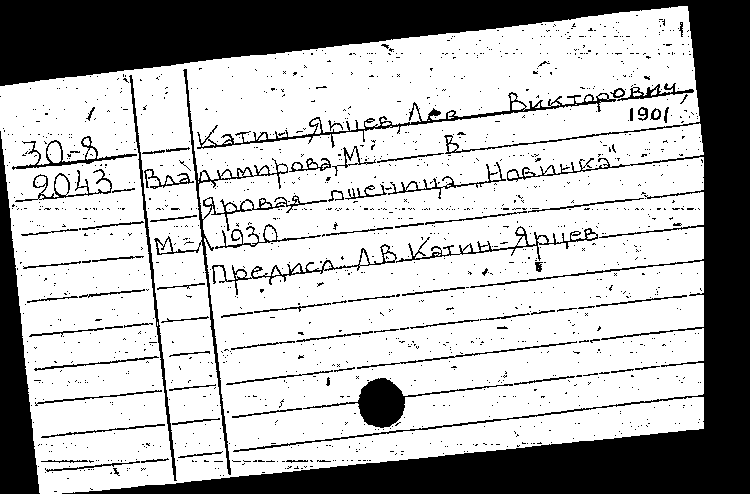 Катин-Ярцев, Лев Викторович,
1901
30-8
2043
Владимирова, М. В.
Яровая пшеница "Новинка".
М.-Л 1930
Предисл. Л.В. Катин-Ярцев